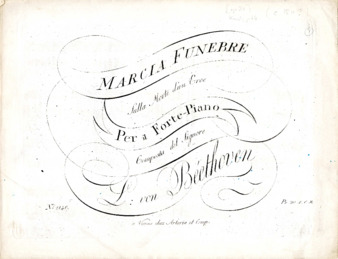 MARCIA FUNEBRE
Sulla Morte d'un Eroe
Per a Forte-Piano
Composta del Signore
L: von Béethoven
a Vienna chez Artaria et Comp.